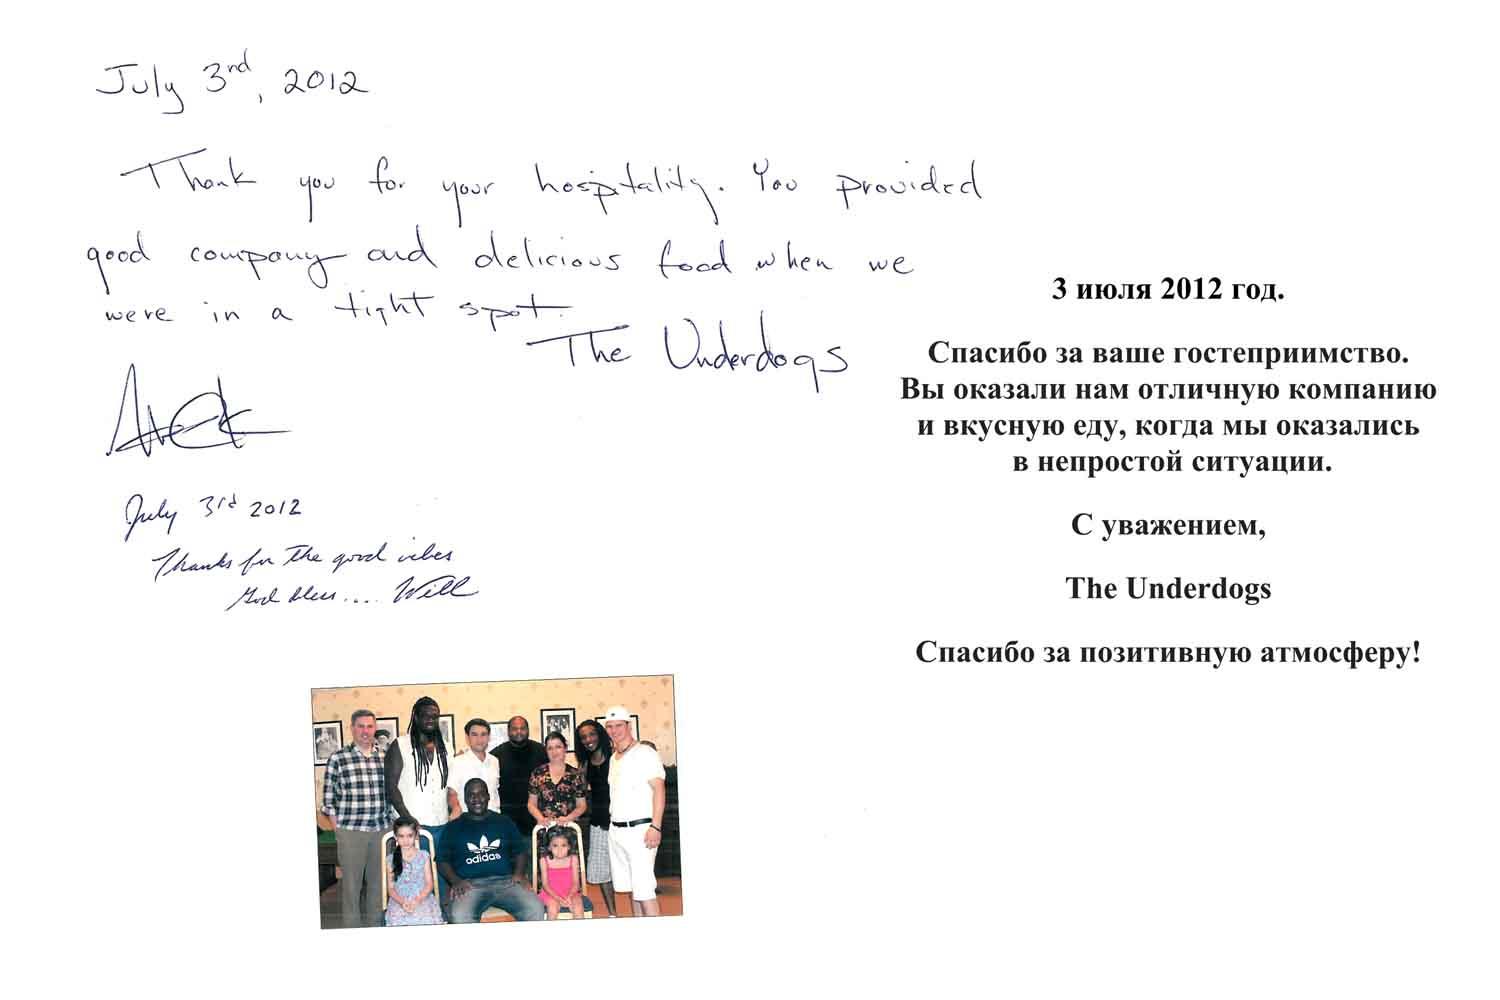 July 3nd, 2012
Thank you for your hospitality. You provided
good company and delicious food when we
were in a tight spot.
The Underdogs
July 3rd 2012
Thanks for the good vibes
God bless.... Will
3 июля 2012 год.
Спасибо за ваше гостеприимство.
Вы оказали нам отличную компанию
и вкусную еду, когда мы оказались
в непростой ситуации.
С уважением,
The Underdogs
Спасибо за позитивную атмосферу!
adidas